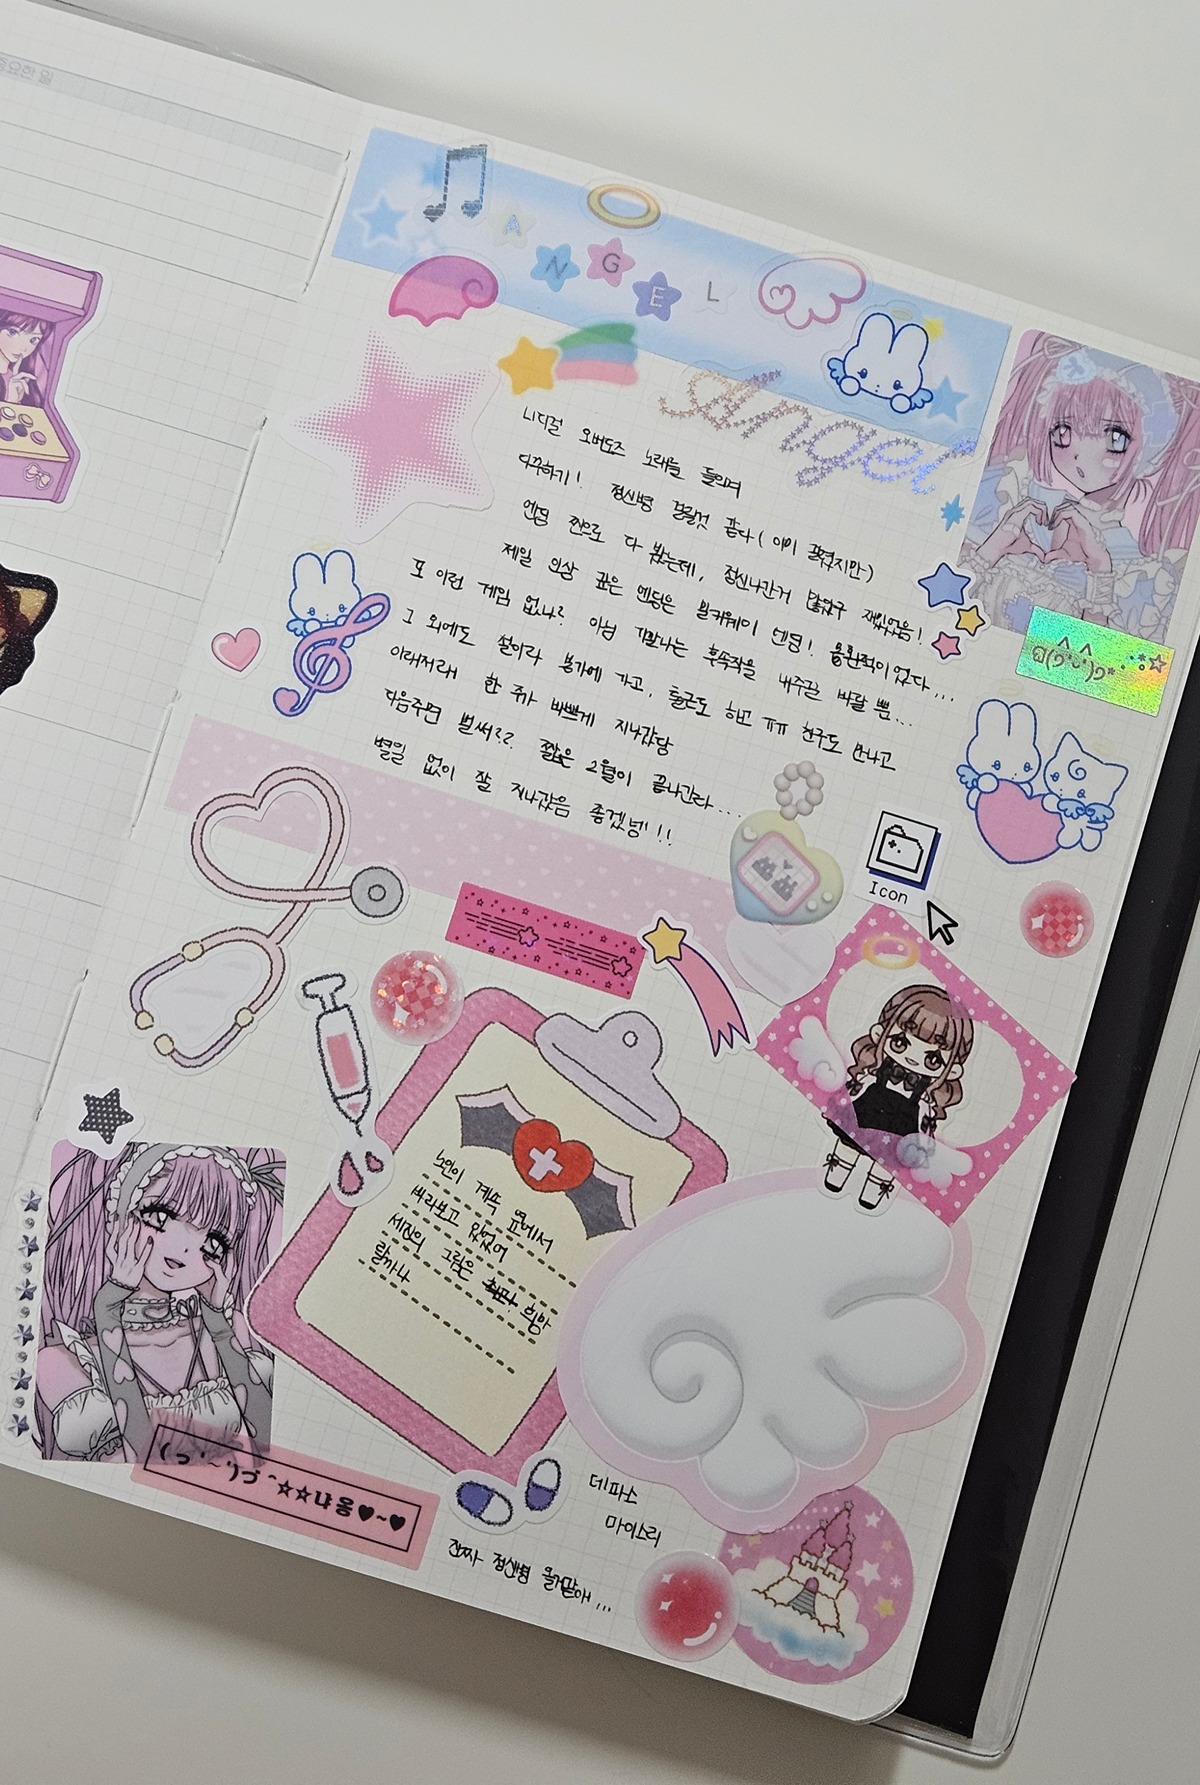 중요한 일
ANGEL
Angel
니디걸 오버도즈 노래를 들으며
다꾸하기! 정신병 걸릴것 같다 (이미 걸렸지만)
엔딩 찐으로 다 봤는데, 정신나간거 많았구 재밌었음!
제일 인상 깊은 엔딩은 볼카웨이 엔딩! 음환적이었다...
또 이런 게임 없나? 아님 기깔나는 후속작을 내주길 바랄 뿐...
그 외에도 설이라 본가에 가고, 출근도 하고 ㅠㅠ 친구도 만나고
이래저래 한 주가 바쁘게 지나갔당
다음주면 벌써?.? 짧은 2월이 끝나간다...
별일 없이 잘 지나갔음 좋겠넹!!
Icon
노인이 계속 앞에서
째려보고 있었어
세진의 그림은 희망
랄까나
냐옹♥~♥
데파스
마이스리
진짜 정신병 올거같애...